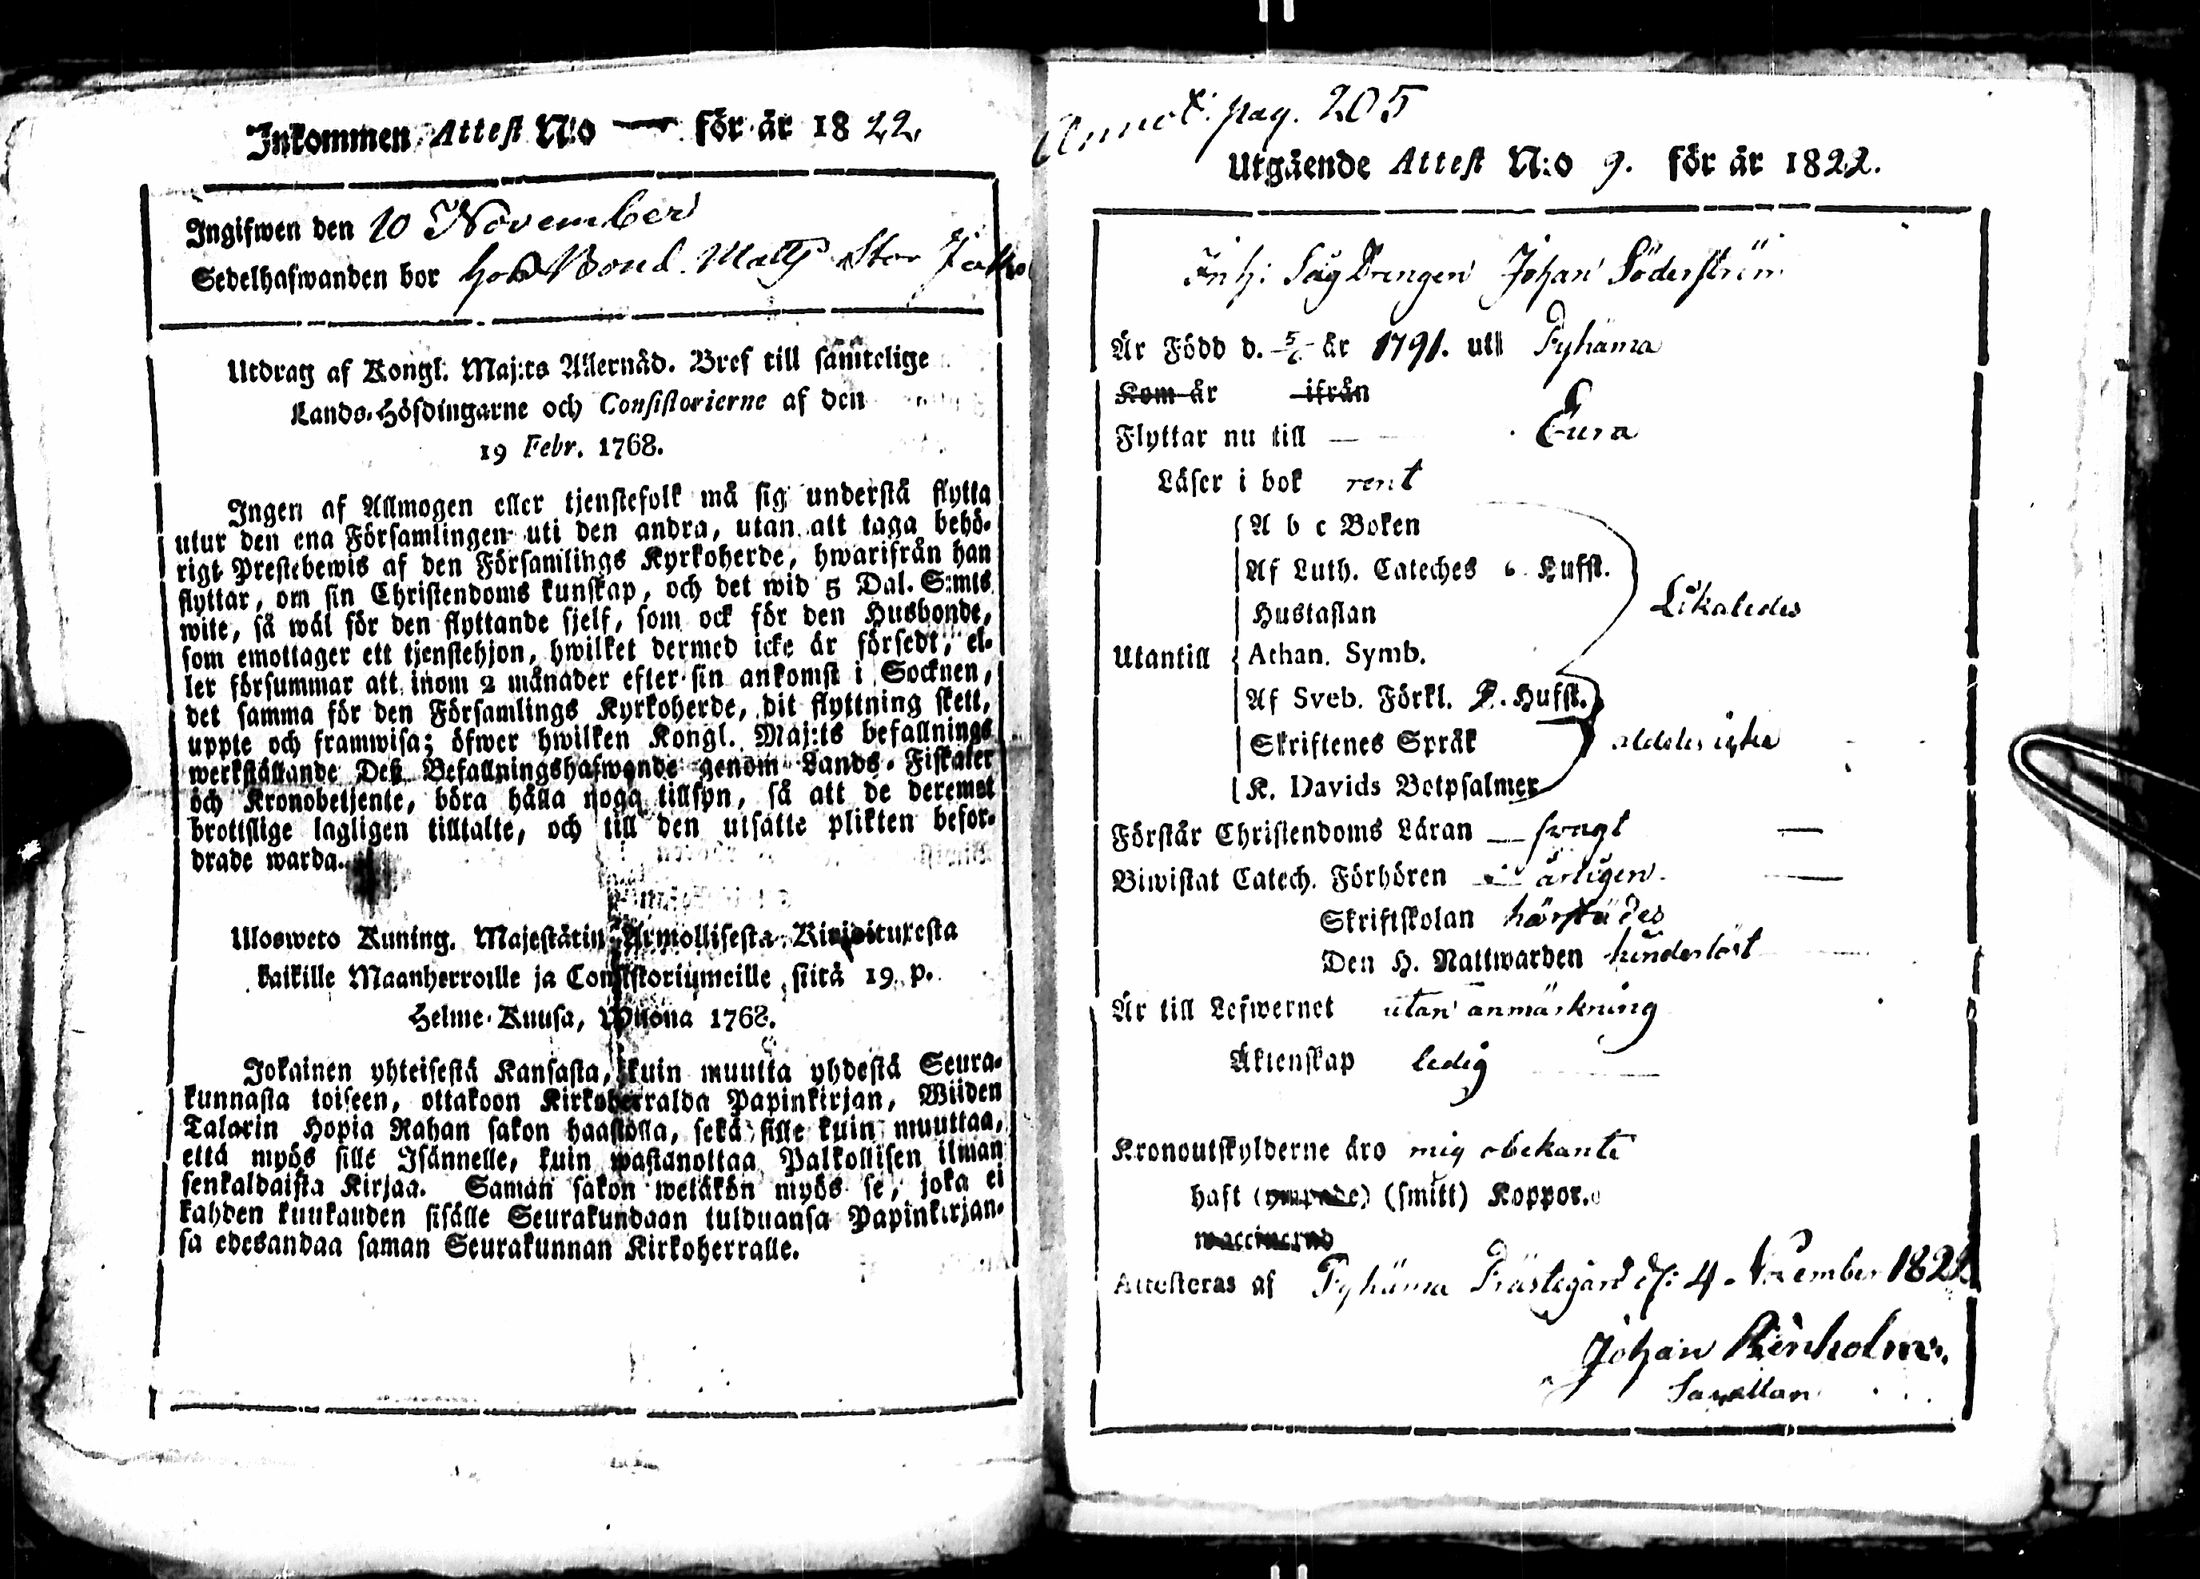 Inkommen Attest N:o — för år 1822.
Ingifwen den 10 November
Sedelhafwanden bor hos Bond. Matts Stor
Utdrag af Kongl. Maj:ts Allernåd. Bref till samtelige
Lands-Höfdingarne och Consistorierne af den
19 Febr. 1768.
Ingen af Allmogen eller tjenstefolk må sig understå flytta
utur den ena Församlingen uti den andra, utan att taga behö-
rigt Prestebewis af den Församlings Kyrkoherde, hwarifrån han
flyttar, om sin Christendoms kunskap, och det wid 5 Dal. S:mts
wite, så wäl för den flyttande sjelf, som ock för den Husbonde,
som emottager ett tjenstehjon, hwilket dermed icke är försedt, el-
ler försummar att inom 2 månader efter sin ankomst i Socknen,
det samma för den Församlings Kyrkoherde, dit flyttning skett,
uppte och framwisa; öfwer hwilken Kongl. Maj:ts befallnings
werkställande Deß Befallningshafwande genom Lands-Fiskaler
och Kronobetjente, böra hålla noga tillsyn, så att de deremot
brottslige lagligen tilltalte, och till den utsatte plikten befor-
drade warda.
Ulosweto Kuning. Majestätin Armollisesta Kirjoituxesta
kaikille Maanherroille ja Consistoriumeille, siitä 19. p.
Helme-Kuusa, Wuona 1768.
Jokainen yhteisestä Kansasta, kuin muutta yhdestä Seura-
kunnasta toiseen, ottakoon Kirkoherralda Papinkirjan, Wiiden
Talarin Hopia Rahan sakon haastolla, sekä sille kuin muuttaa,
että myös sille Isännelle, kuin wastanottaa Palkollisen ilman
senkaldaista Kirjaa. Saman sakon wetäkön myös se, joka ei
kahden kuukauden sisälle Seurakundaan tulduansa Papinkirjan-
sa edesandaa saman Seurakunnan Kirkoherralle.
Annot. pag. 205
Utgående Attest N:o 9. för år 1822.
Såg Drengen Johan Söderström
Är Född d. 5/6 år 1791. uti Pyhäma
Kom år ifrån
Flyttar nu till — Eura
Läser i bok rent
A b c Boken
Af Luth. Cateches 6 Hufst.
Hustaflan
Likaledes
Utantill Athan. Symb.
Af Sveb. Förkl. 2. Hufst.
Skriftenes Språk aldeles icke
K. Davids Botpsalmer
Förstår Christendoms Läran — swagt —
Biwistat Catech. Förhören årligen. —
Skriftskolan härstädes
Den H. Nattwarden hinderlöst
Är till Lefwernet utan anmärkning
Äktenskap ledig
Kronoutskylderne äro mig obekante
haft (ympade) (smitt) Koppor.
waccinerad
Attesteras af Pyhäma Prästegård d: 4 November 1822
Johan Renholm.
Sacellan